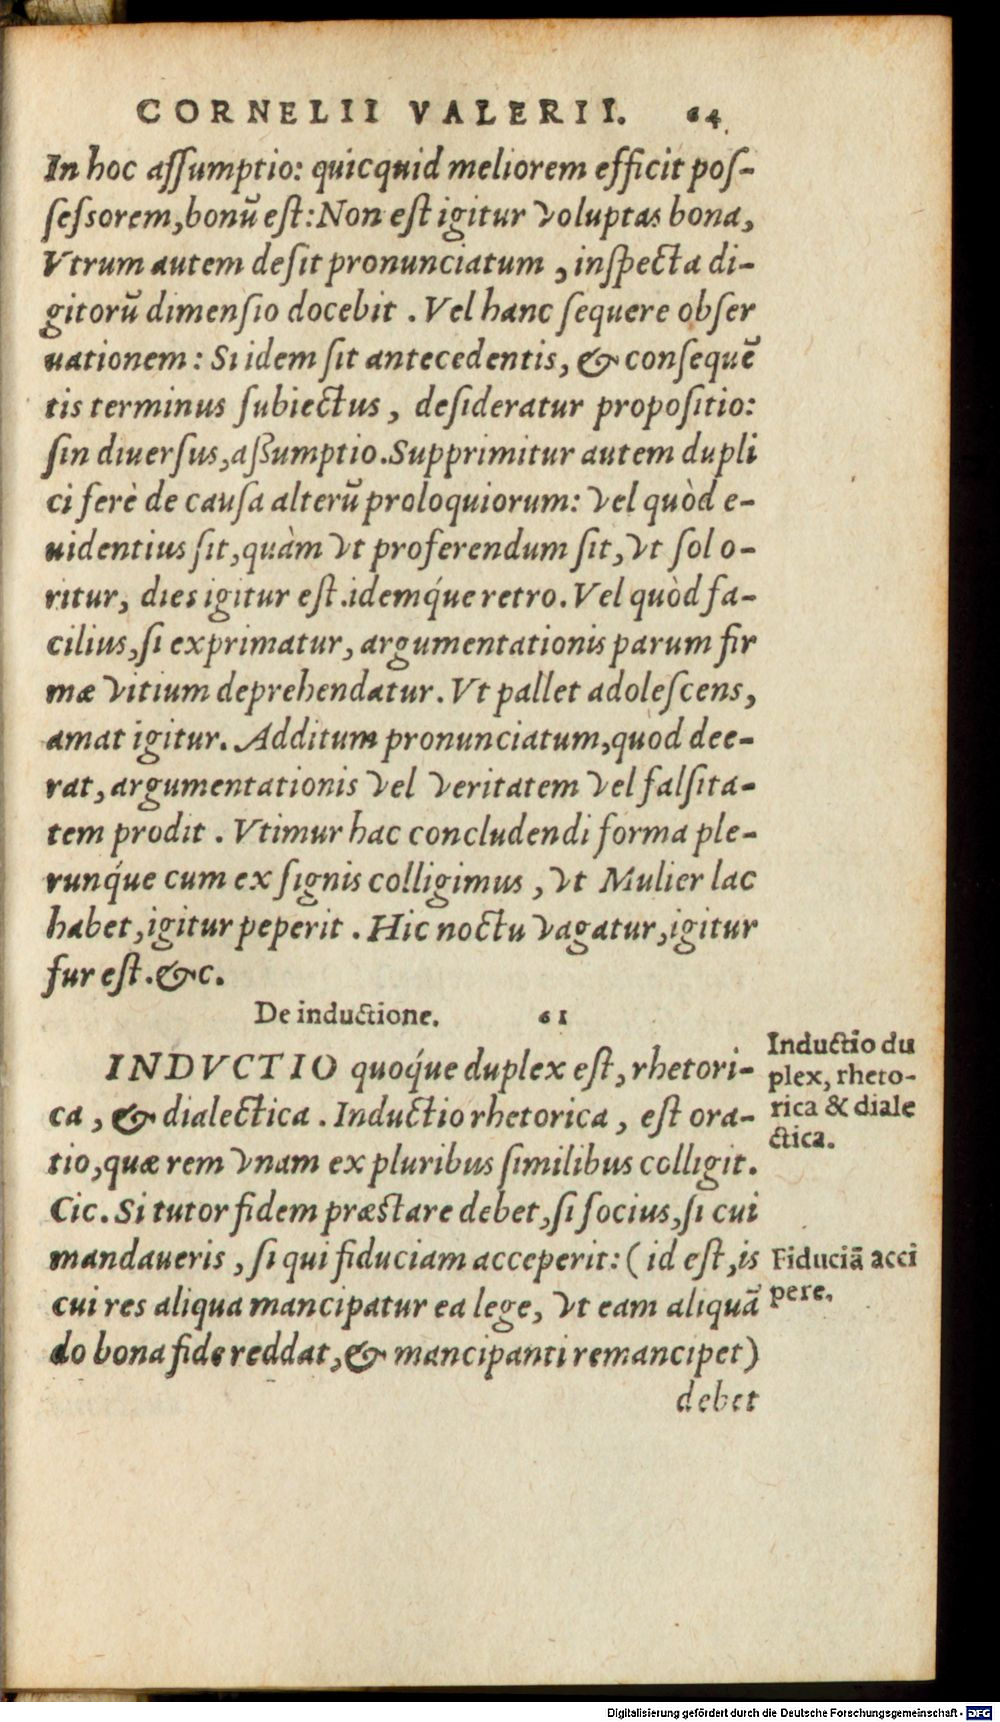 CORNELII VALERII. 64
In hoc aſſumptio: quicquid meliorem efficit poſ-
ſeſsorem, bonū eſt: Non est igitur voluptas bona,
Vtrum autem deſit pronunciatum, inſpecta di-
gitorū dimenſio docebit. Vel hanc ſequere obſer
uationem: Si idem ſit antecedentis, & conſequē
tis terminus ſubiectus, deſideratur propoſitio:
ſin diuerſus, aßumptio. Supprimitur autem dupli
ci ferè de cauſa alterū proloquiorum: vel quòd e-
uidentius ſit, quàm vt proferendum ſit, vt ſol o-
ritur, dies igitur eſt. idemq́ue retro. Vel quòd fa-
cilius, ſi exprimatur, argumentationis parum fir
mæ vitium deprehendatur. Vt pallet adoleſcens,
amat igitur. Additum pronunciatum, quod dee-
rat, argumentationis vel veritatem vel falſita-
tem prodit. Vtimur hac concludendi forma ple-
runq́ue cum ex ſignis colligimus, vt Mulier lac
habet, igitur peperit. Hic noctu vagatur, igitur
fur eſt. &c.
De inductione. 61
INDVCTIO quoq́ue duplex eſt, rhetori-
ca, & dialectica. Inductio rhetorica, eſt ora-
tio, quæ rem vnam ex pluribus ſimilibus colligit.
Cic. Si tutor fidem præstare debet, ſi ſocius, ſi cui
mandaueris, ſi qui fiduciam acceperit: (id eſt, is
cui res aliqua mancipatur ea lege, vt eam aliquā
do bona fide reddat, & mancipanti remancipet)
debet
Inductio du
plex, rheto-
rica & diale
ctica.
Fiduciā acci
pere.
Digitalisierung gefördert durch die Deutsche Forschungsgemeinschaft - DFG